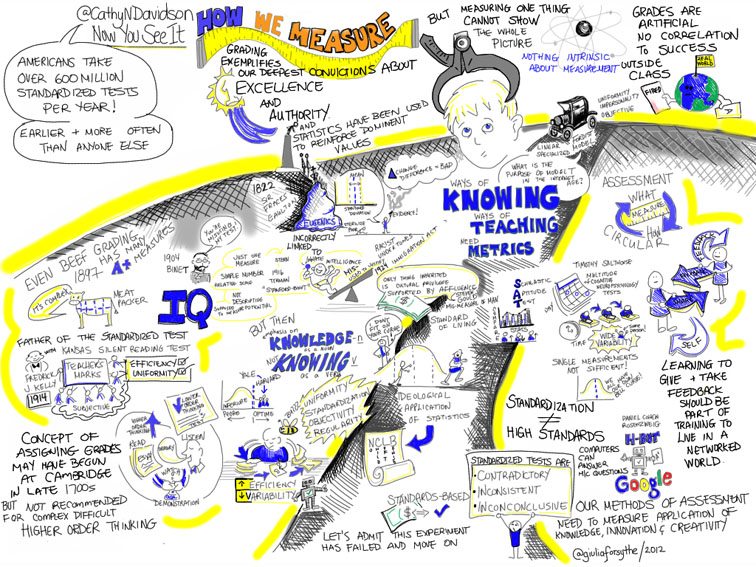 @CathyNDavidson
Now You See It
AMERICANS TAKE
OVER 600 MILLION
STANDARDIZED TESTS
PER YEAR!
EARLIER + MORE OFTEN
THAN ANYONE ELSE
HOW WE MEASURE
GRADING
EXEMPLIFIES
OUR DEEPEST CONVICTIONS ABOUT
EXCELLENCE
AND
AUTHORITY
AND
STATISTICS HAVE BEEN USED
TO REINFORCE DOMINENT
VALUES
BUT MEASURING ONE THING
CANNOT SHOW
THE WHOLE
PICTURE
NOTHING INTRINSIC
ABOUT MEASUREMENT
GRADES ARE
ARTIFICIAL
NO CORRELATION
TO SUCCESS
OUTSIDE
CLASS
REAL
WORLD
FIRED
UNIFORMITY
IMPERSONALITY
OBJECTIVE
LINEAR
SPECIALIZED
FORDIST
MODEL
WHAT IS THE
PURPOSE OF MODEL T
IN THE INTERNET
AGE?
WAYS OF
KNOWING
WAYS OF
TEACHING
NEED
METRICS
ASSESSMENT
WHAT
MEASURE
HOW
CIRCULAR
EVEN BEEF GRADING
1897
HAS MANY
A+ MEASURES
IT'S COMPLEX
MEAT
PACKER
YOU'RE
MISSING
1822
GALTON
EUGENICS
INCORRECTLY
LINKED TO
MEAN
STANDARD
DEVIATION
CHANGE
DIFFERENCE = BAD
EVIDENCE!
1904
BINET
IQ
JUST ONE
MEASURE
SIMPLE NUMBER
RELATED SCORE
NOT
DESCRIBING
SUPPOSED TO
MEASURE POTENTIAL
1916
TERMAN
STANFORD-BINET
INNATE INTELLIGENCE
MIS-
USED
RACIST
UNDERTONES
1924
IMMIGRATION ACT
ONLY THING INHERITED
IS CULTURAL PRIVILEGE
SUPPORTED BY AFFLUENCE
$
STANDARD
OF LIVING
MIS-MEASURE OF MAN
SCHOLASTIC
APTITUDE
TEST
SAT
TIMOTHY SALTHOUSE
MULTITUDE
OF COGNITIVE
NEUROPSYCHOLOGY
TESTS
TIME
WIDE
VARIABILITY
SINGLE MEASUREMENTS
NOT SUFFICIENT!
FEEDBACK
SELF
LEARNING TO
GIVE + TAKE
FEEDBACK
SHOULD BE
PART OF
TRAINING TO
LIVE IN A
NETWORKED
WORLD.
FATHER OF THE STANDARDIZED TEST
WITH KANSAS SILENT READING TEST
FREDRICK
J KELLY
1914
TEACHER'S
MARKS
SUBJECTIVE
EFFICIENCY
UNIFORMITY
BUT THEN
emphasis on
KNOWLEDGE-n
as a noun
NOT
KNOWING v
as a verb
YALE
HARVARD
APERTURE
PEDRO
OPTIMO
DON'T
FIT ON
YOUR CURVE
UNIFORMITY
STANDARDIZATION
OBJECTIVITY
REGULARITY
IDEOLOGICAL
APPLICATION
OF STATISTICS
NCLB
STANDARDIZATION
≠
HIGH STANDARDS
HIGHER
ORDER
THINKING
LOWER
ORDER
THINKING
READ
LISTEN
ESSAY
MEMORY
WATCH
DEMONSTRATION
CONCEPT OF
ASSIGNING GRADES
MAY HAVE BEGUN
AT CAMBRIDGE
IN LATE 1700s
BUT NOT RECOMMENDED
FOR COMPLEX DIFFICULT
HIGHER ORDER THINKING
EFFICIENCY
VARIABILITY
STANDARDS-BASED
$
LET'S ADMIT THIS EXPERIMENT
HAS FAILED AND MOVE ON
STANDARDIZED TESTS ARE
• CONTRADICTORY
• INCONSISTENT
• INCONCLUSIVE
DANIEL COHEN
ROSENZWEIG
H-BOT
COMPUTERS
CAN
ANSWER
M/C QUESTIONS
Google
OUR METHODS OF ASSESSMENT
NEED TO MEASURE APPLICATION OF
KNOWLEDGE, INNOVATION & CREATIVITY
@giuliaforsythe/2012